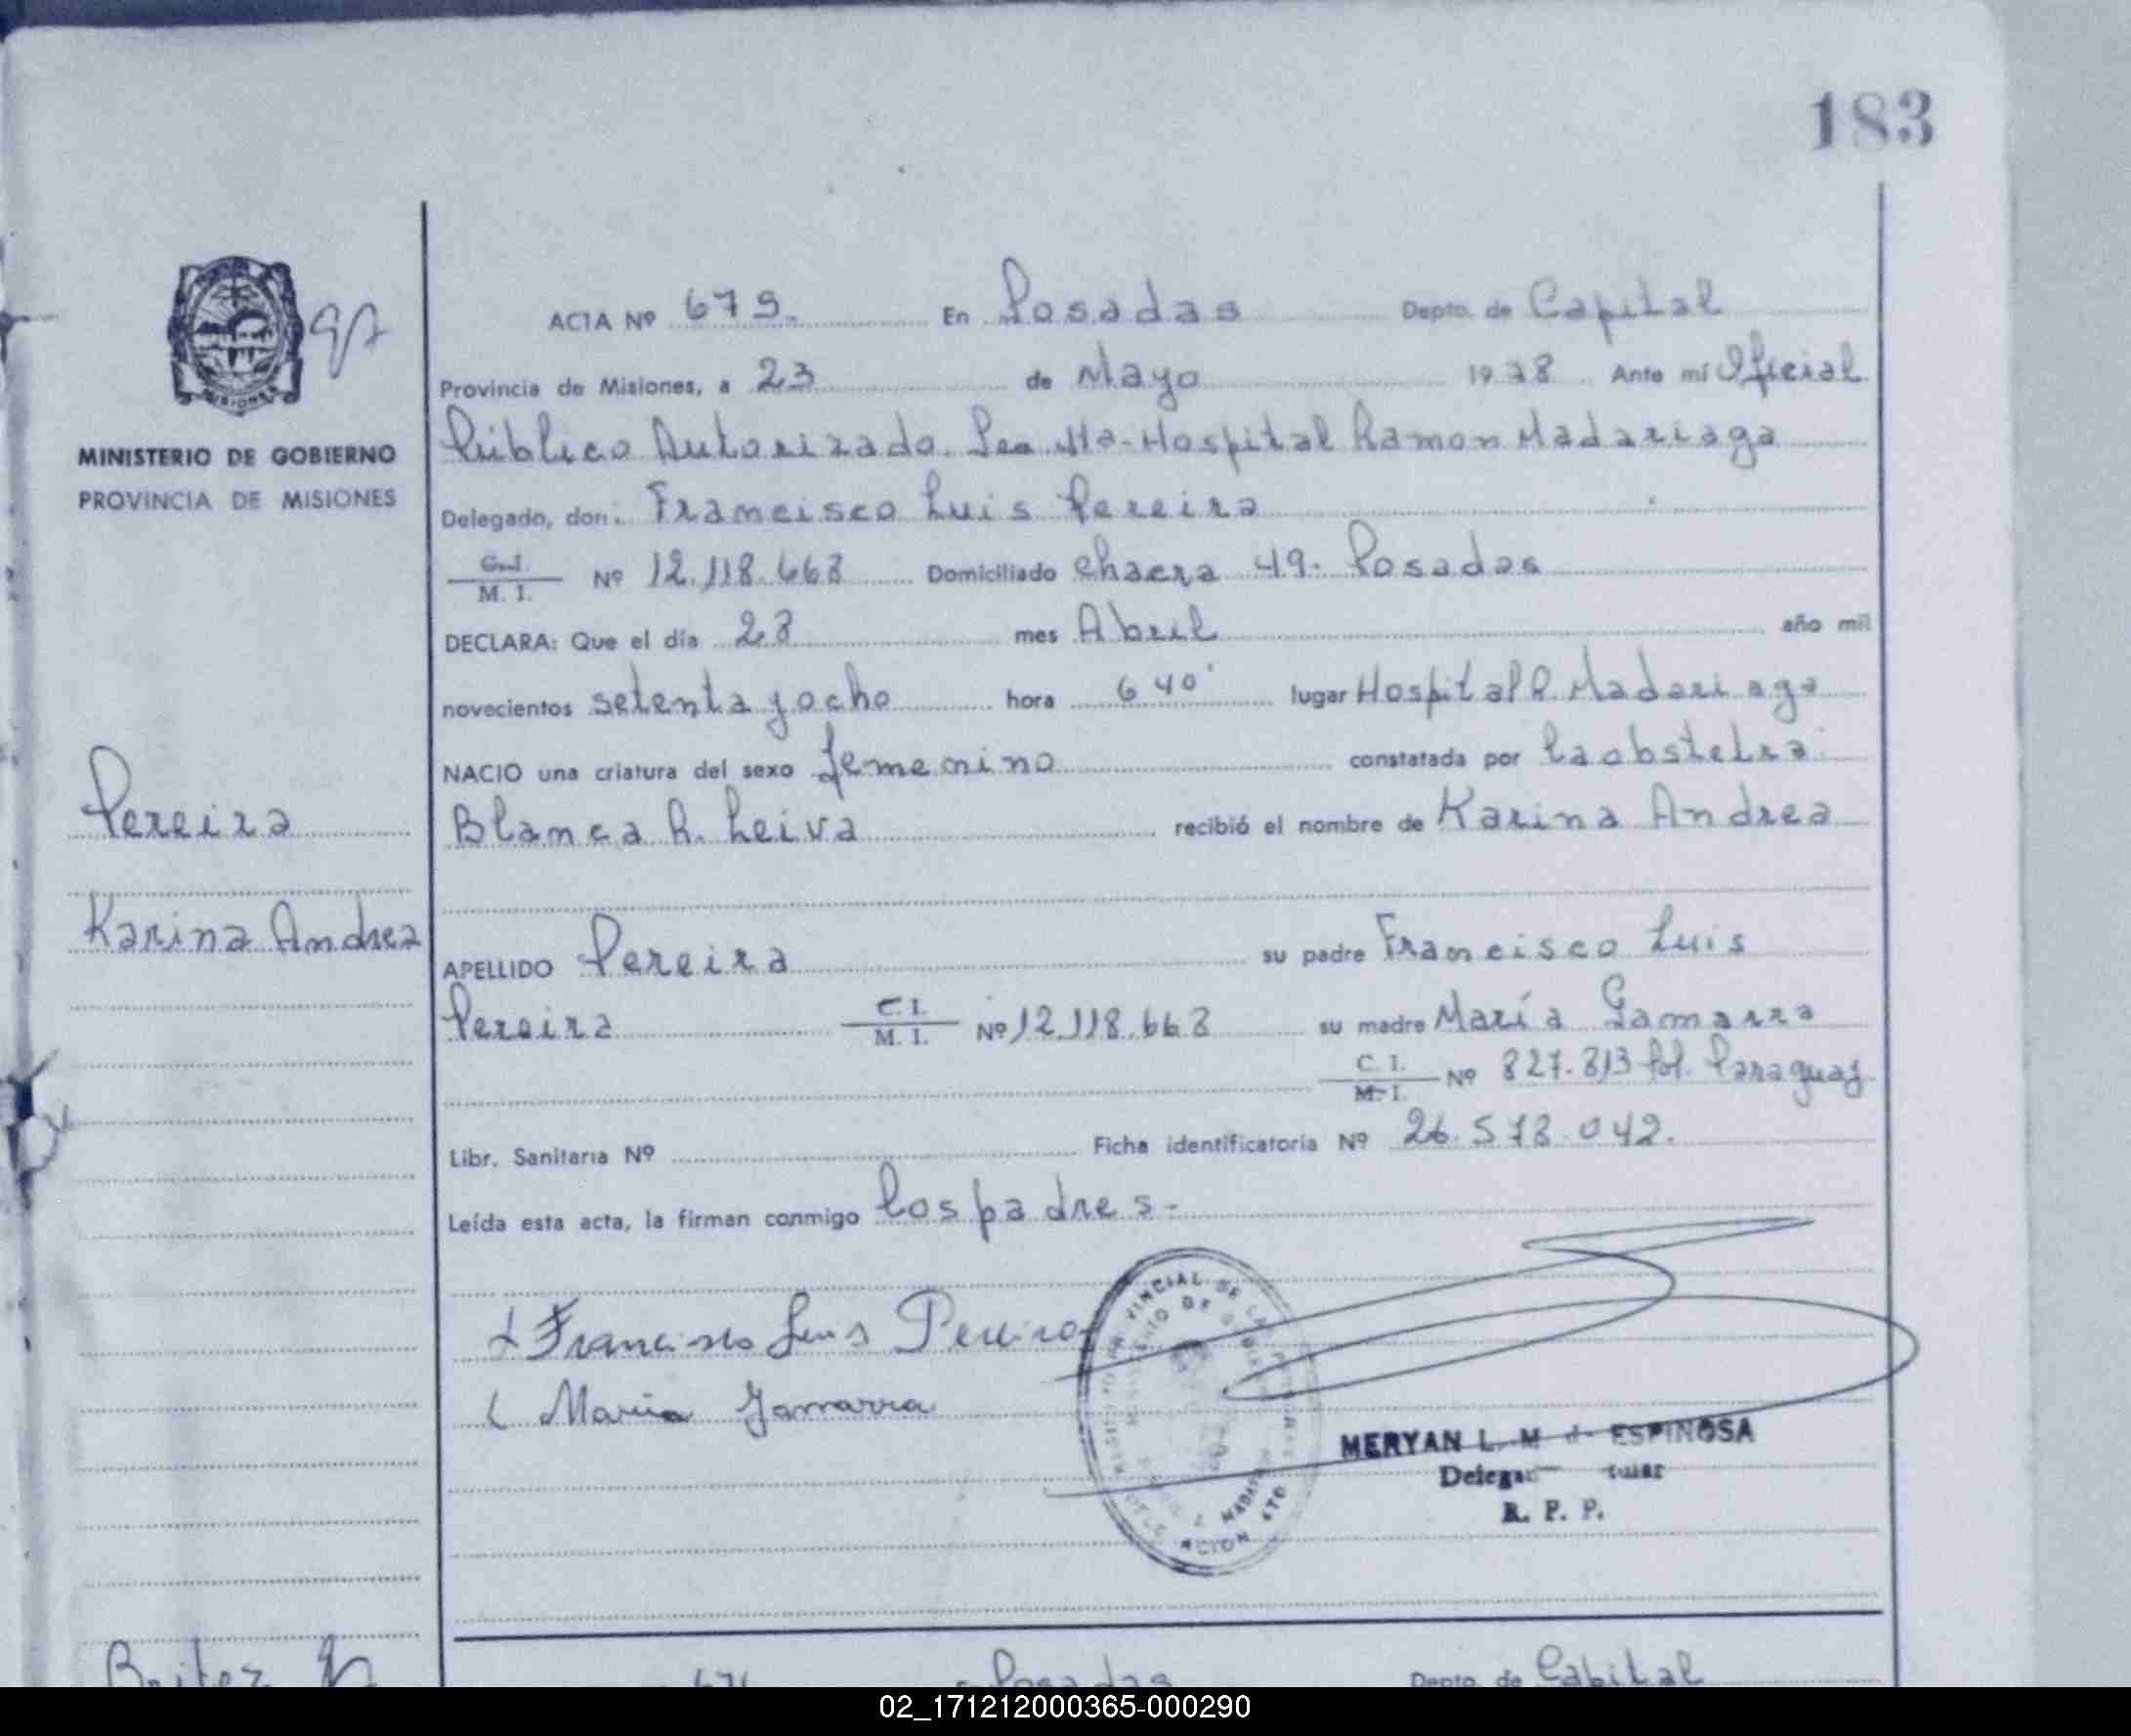 183
ACTA Nº 675. En Posadas Depto. de Capital
Provincia de Misiones, a 23 de Mayo 1978 Ante mí Oficial
Público Autorizado. Hospital Ramon Madariaga
Delegado, don: Francisco Luis Pereira
C.I. / M. I. Nº 12.118.668 Domiciliado Chacra 49- Posadas
DECLARA: Que el día 28 mes Abril año mil
novecientos setenta y ocho hora 6 40' lugar Hospital R. Madariaga
NACIO una criatura del sexo femenino constatada por la obstetra
Blanca R. Leiva recibió el nombre de Karina Andrea
APELLIDO Pereira su padre Francisco Luis
Pereira C. I. / M. I. Nº 12.118.668 su madre María Gamarra
C. I. / M. I. Nº 827.813 Pol. Paraguay
Libr. Sanitaria Nº Ficha identificatoria Nº 26.578.042.
Leída esta acta, la firman conmigo los padres-
Francisco Luis Pereira
Maria Gamarra
MERYAN L. M ESPINOSA
R. P. P.
MINISTERIO DE GOBIERNO
PROVINCIA DE MISIONES
Pereira
Karina Andrea
Britez
Posadas Depto. de Capital
02_171212000365-000290